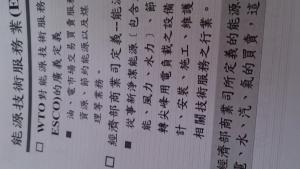 能源技術服務業(E
□ WTO對能源技術服務
ESCO)的廣義定義
■ 油、電力市場交易買賣服
資源、節約能源以及媒
理等業務。
□ 經濟部商業司定義—能源
■ 從事新淨潔能源(包含
能、風力、水力)、節
轉尖峰用電負載之設備
計、安裝、施工、維護
相關技術服務之行業。
經濟部商業司所定義的能源
電、水、汽、氣的買賣,這